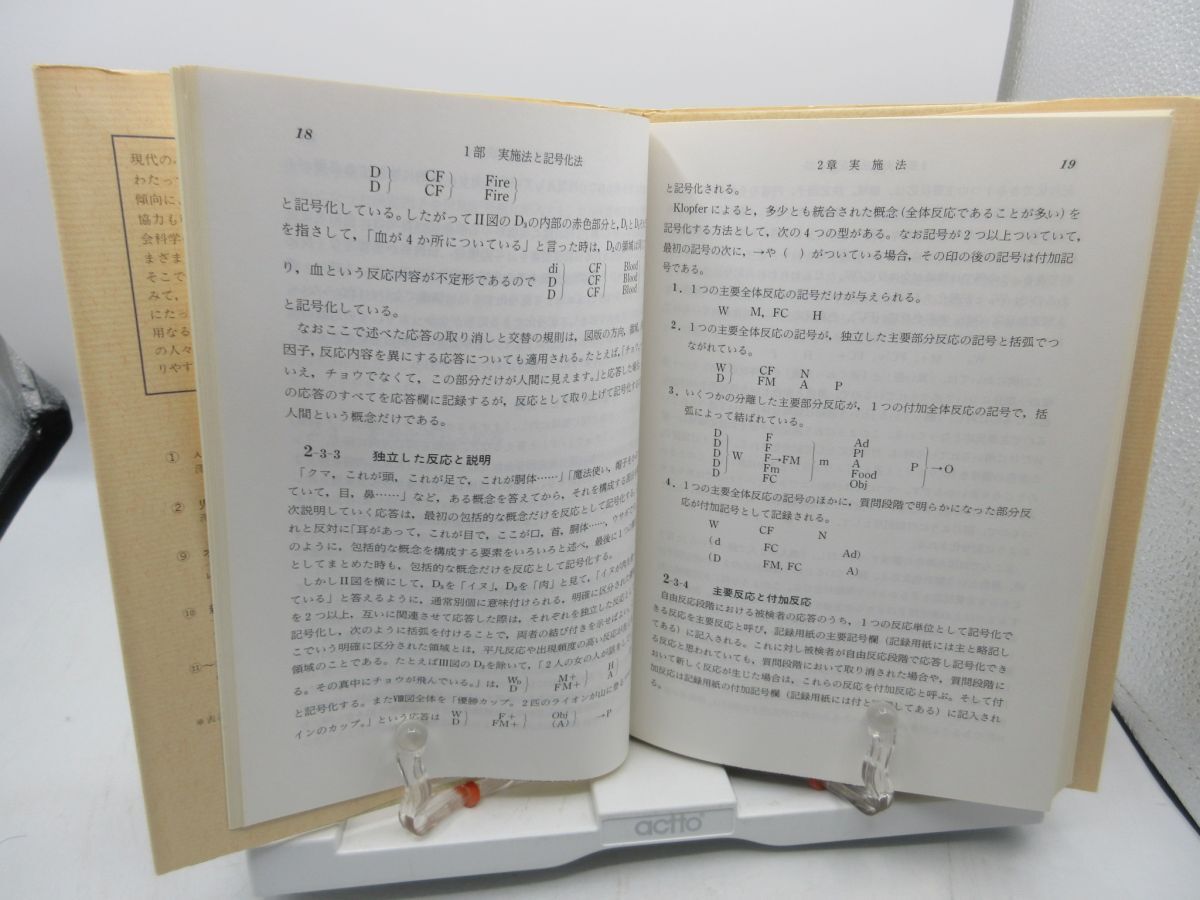 現代の
わたって
傾向に、
協力も
会科学
まざま
そこで
みて，
にたっ
用なる
の人々
りやす
①
②
⑨
⑩
⑪〜
18
1部　実施法と記号化法
D｝　CF｝　Fire｝
D｝　CF｝　Fire｝
と記号化している。したがってⅡ図のD₃の内部の赤色部分と，D₁とD₂
を指さして，「血が4か所についている」と言った時は，D₃の領域
り，血という反応内容が不定形であるので　di｝　CF｝　Blood
D｝　CF｝　Blood
D｝　CF｝　Blood
と記号化している。
なおここで述べた応答の取り消しと交替の規則は，図版の方向，領域，
因子，反応内容を異にする応答についても適用される。たとえば，「チョウ，
いえ，チョウでなくて，この部分だけが人間に見えます。」と応答した
の応答のすべてを応答欄に記録するが，反応として取り上げて記号化する
人間という概念だけである。
2-3-3　独立した反応と説明
「クマ，これが頭，これが足で，これが胴体……」「魔法使い，帽子を
ていて，目，鼻……」など，ある概念を答えてから，それを構成する
次説明していく応答は，最初の包括的な概念だけを反応として記号化する。
れと反対に「耳があって，これが目で，ここが口，首，胴体……，ウサギ
のように，包括的な概念を構成する要素をいろいろと述べ，最後に1つの
としてまとめた時も，包括的な概念だけを反応として記号化する。
しかしⅡ図を横にして，D₃を「イヌ」，D₂を「肉」と見て，「イヌが肉を
ている」と答えるように，通常別個に意味付けられる，明確に区分された
を2つ以上，互いに関連させて応答した際は，それぞれを独立した反応
記号化し，次のように括弧を付けることで，両者の結び付きを示せばよい。
こでいう明確に区分された領域とは，平凡反応や出現頻度の高い反応が
領域のことである。たとえばⅢ図のD₃を除いて，「2人の女の人が話を
る。その真中にチョウが飛んでいる。」は，W₀｝　M+｝　H
D｝　FM+｝　A
と記号化する。またⅧ図全体を「優勝カップ。2匹のライオンが山に登る
インのカップ。」という応答は　W｝　F+｝　Obj｝　→P
D｝　FM+｝　(A)｝
2章　実　施　法
19
と記号化される。
Klopferによると，多少とも統合された概念（全体反応であることが多い）を
記号化する方法として，次の4つの型がある。なお記号が2つ以上ついていて，
最初の記号の次に，→や（　）がついている場合，その印の後の記号は付加記
号である。
1．1つの主要全体反応の記号だけが与えられる。
W　M, FC　H
2．1つの主要全体反応の記号が，独立した主要部分反応の記号と括弧でつ
ながれている。
W｝　CF　N
D｝　FM　A　P
3．いくつかの分離した主要部分反応が，1つの付加全体反応の記号で，括
弧によって結ばれている。
D｝　F｝　Ad｝
D｝　F｝　Pl｝
D｝W　F→FM｝m　A　P｝→O
D｝　Fm｝　Food｝
D｝　FC｝　Obj｝
4．1つの主要全体反応の記号のほかに，質問段階で明らかになった部分反
応が付加記号として記録される。
W　CF　N
(d　FC　Ad)
(D　FM, FC　A)
2-3-4　主要反応と付加反応
自由反応段階における被検者の応答のうち，1つの反応単位として記号化で
きる反応を主要反応と呼び，記録用紙の主要記号欄（記録用紙には主と略記し
てある）に記入される。これに対し被検者が自由反応段階で応答し記号化でき
る反応と思われていても，質問段階において取り消された場合や，質問段階に
おいて新しく反応が生じた場合は，これらの反応を付加反応と呼ぶ。そして付
加反応は記録用紙の付加記号欄（記録用紙には付と略記してある）に記入され
る。
actto